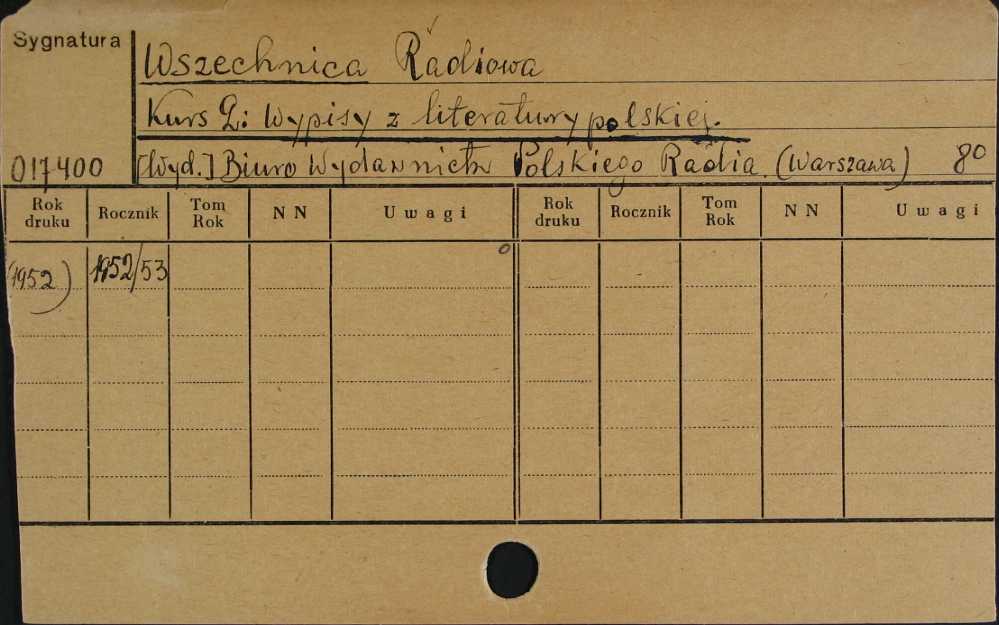 Sygnatura
Wszechnica Radiowa
Kurs 2: Wypisy z literatury polskiej.
017400 [Wyd.] Biuro Wydawnictw Polskiego Radia. (Warszawa) 8º
Rok druku Rocznik Tom Rok N N Uwagi Rok druku Rocznik Tom Rok N N Uwagi
(1952) 1952/53